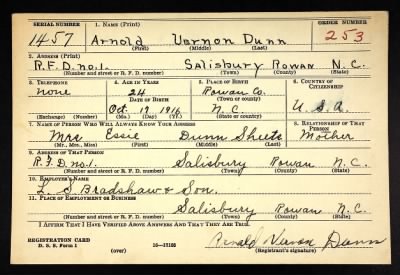 SERIAL NUMBER 1. NAME (Print) ORDER NUMBER
1457 Arnold Vernon Dunn 253
(First) (Middle) (Last)
2. ADDRESS (Print)
R.F.D. no.1. Salisbury Rowan N.C.
(Number and street or R. F. D. number) (Town) (County) (State)
3. TELEPHONE 4. AGE IN YEARS 5. PLACE OF BIRTH 6. COUNTRY OF CITIZENSHIP
none 24 Rowan Co.
DATE OF BIRTH (Town or county)
Oct. 19 1916 N.C. U.S.A
(Exchange) (Number) (Mo.) (Day) (Yr.) (State or country)
7. NAME OF PERSON WHO WILL ALWAYS KNOW YOUR ADDRESS 8. RELATIONSHIP OF THAT PERSON
Mrs Essie Dunn Sheets Mother
(Mr., Mrs., Miss) (First) (Middle) (Last)
9. ADDRESS OF THAT PERSON
R.F.D. no.1. Salisbury Rowan N.C.
(Number and street or R. F. D. number) (Town) (County) (State)
10. EMPLOYER'S NAME
L. S. Bradshaw & Son.
11. PLACE OF EMPLOYMENT OR BUSINESS
Salisbury Rowan N.C.
(Number and street or R. F. D. number) (Town) (County) (State)
I AFFIRM THAT I HAVE VERIFIED ABOVE ANSWERS AND THAT THEY ARE TRUE.
REGISTRATION CARD Arnold Vernon Dunn
D. S. S. Form 1 (over) (Registrant's signature)